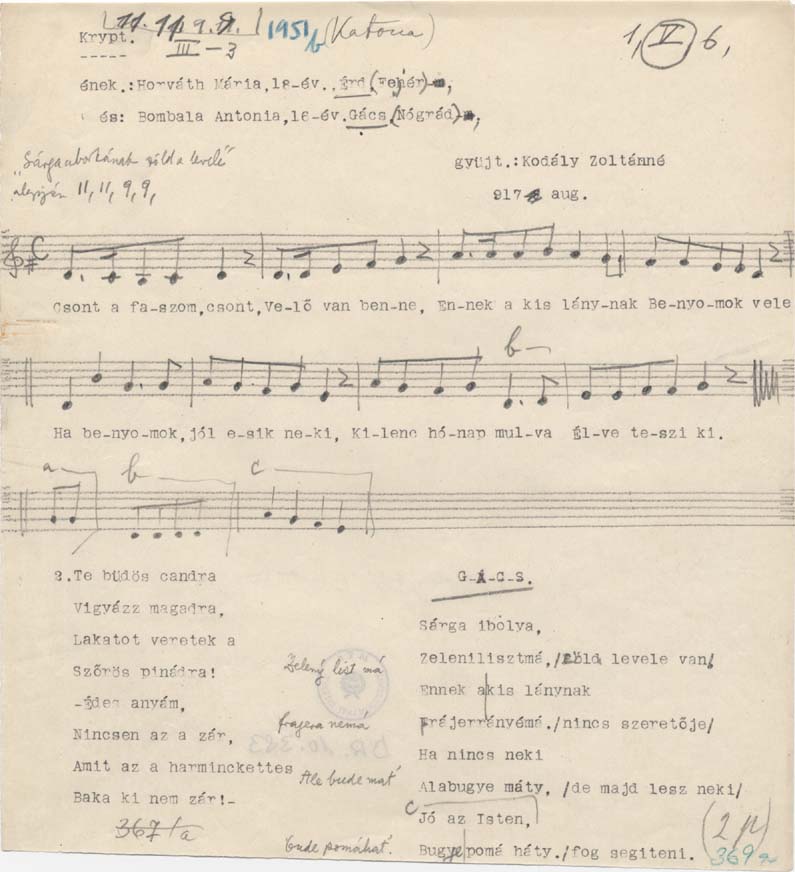 11. 11. 9. 9. 1951/b (Katona)
Krypt. III-3
1, V 6,
ének.:Horváth Mária,18-év..Érd,(Fehér)-m,
és: Bombala Antonia,16-év.Gács,(Nógrád)-m,
"Sárga uborkának zöld a levele"
alapján 11, 11, 9, 9,
gyüjt.:Kodály Zoltánné
917 aug.
Csont a fa-szom,csont,Ve-lő van ben-ne, En-nek a kis lány-nak Be-nyo-mok vele
b-
Ha be-nyo-mok,jól e-sik ne-ki, Ki-lenc hó-nap mul-va Él-ve te-szi ki.
a b c
2.Te büdös candra
Vigyázz magadra,
Lakatot veretek a
Szőrös pinádra!
-Édes anyám,
Nincsen az a zár,
Amit az a harminckettes
Baka ki nem zár!-
367/a
Zelený list má
frajera nemá
Ale bude mať
bude pomáhať.
G-Á-C-S.
Sárga ibolya,
Zelenilisztmá,/Zöld levele van/
Ennek a kis lánynak
Frájerrányémá./nincs szeretője/
Ha nincs neki
Alabugye máty, /de majd lesz neki/
c
Jó az Isten,
Bugye pomá háty./fog segiteni.
(2 p)
369a